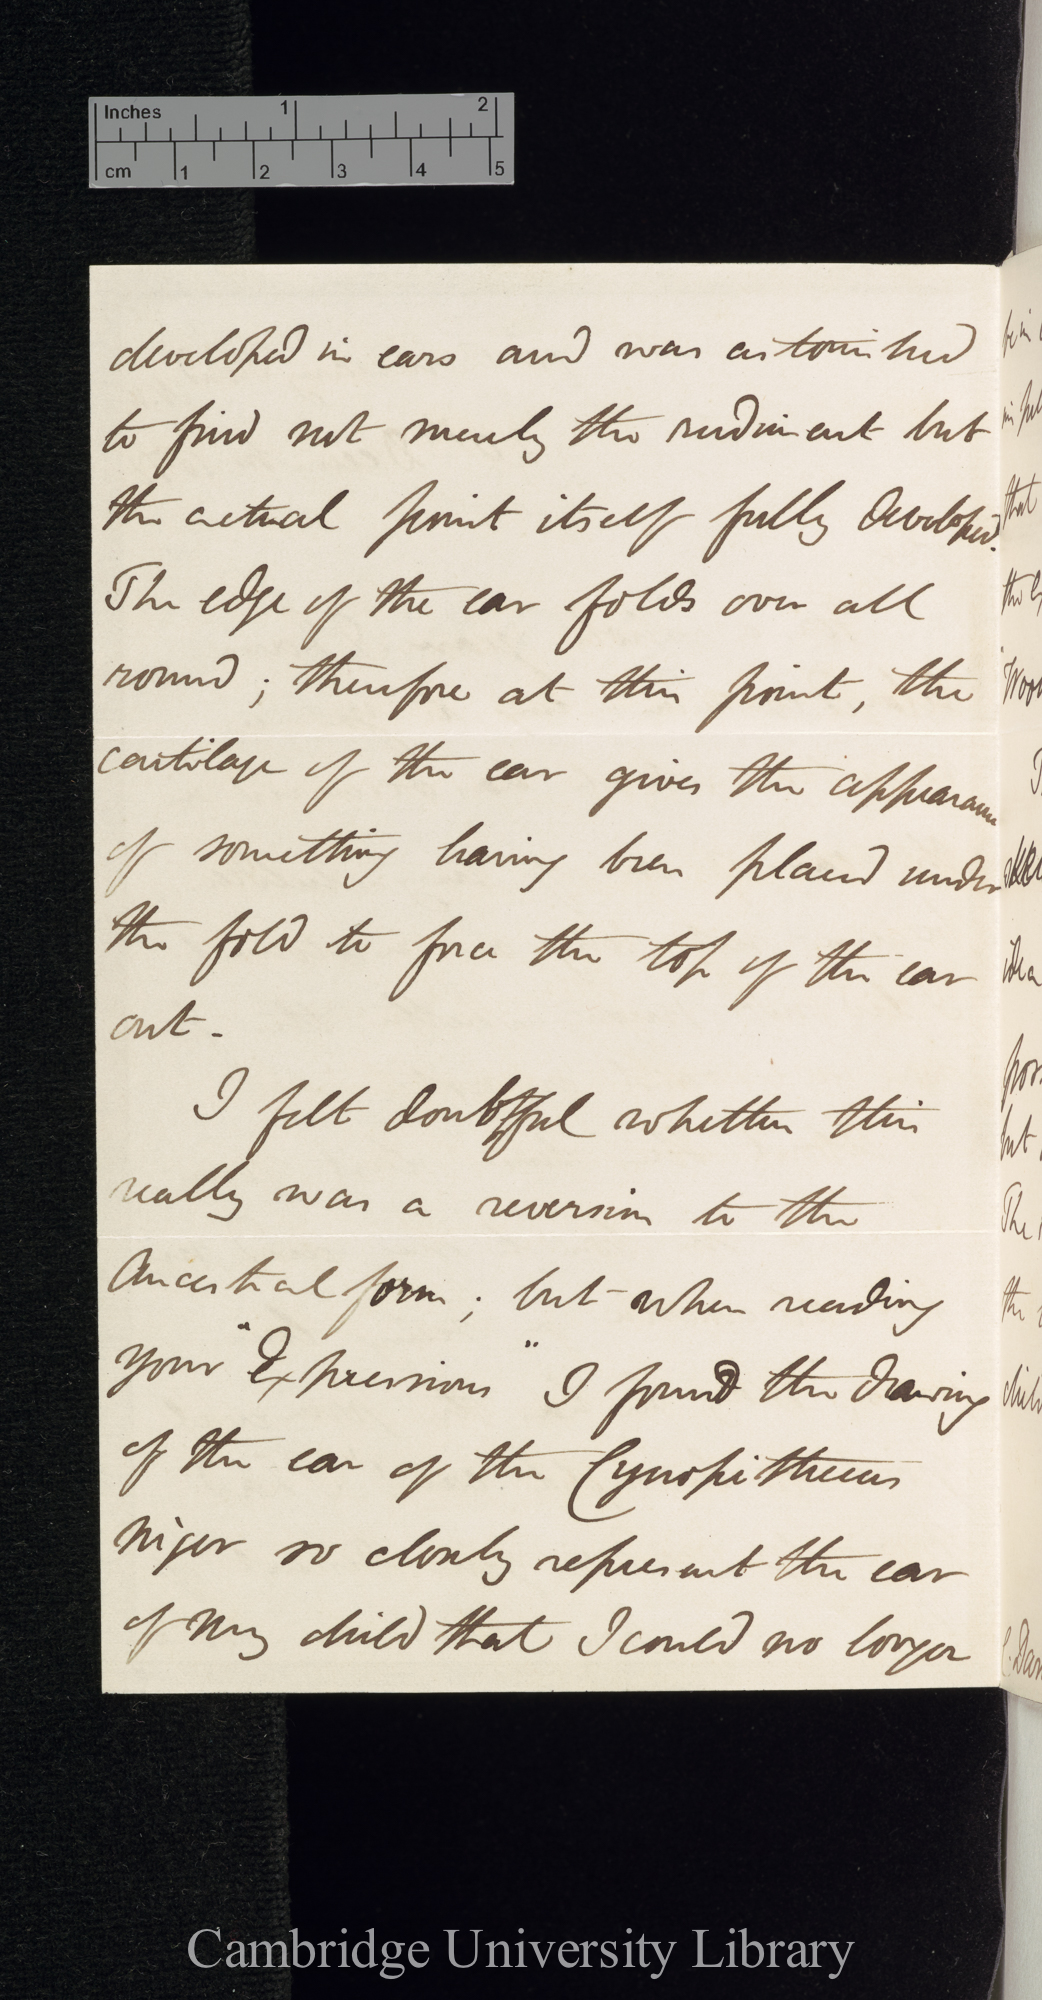 Inches 1 2
cm 1 2 3 4 5
developed in ears and was astonished
to find not merely the rudiment but
the actual point itself fully developed.
The edge of the ear folds over all
round; therefore at this point, the
cartilage of the ear gives the appearance
of something having been placed under
the fold to force the top of the ear
out-
I felt doubtful whether this
really was a reversion to the
Ancestral form; but when reading
your "Expressions" I found the drawing
of the ear of the Cynopithecus
niger so closely represent the ear
of my child that I could no longer
that
but
The
the
Cambridge University Library